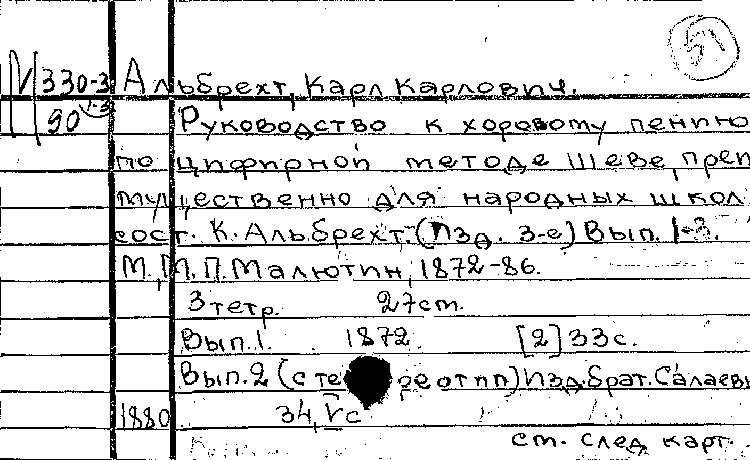 51
330-3 Альбрехт, Карл Карлович.
90 1-3 Руководство к хоровому пению
по цифирной методе Шеве, преи
мущественно для народных школ
сост. К. Альбрехт. (Изд. 3-е) Вып. 1-3.
М., М.П. Малютин, 1872-86.
3 тетр. 27 ст.
Вып. 1. 1872. [2] 33 с.
Вып. 2 (с те реотип) Изд. Брат. Салаевы
1880 34, V с
ст. след карт.